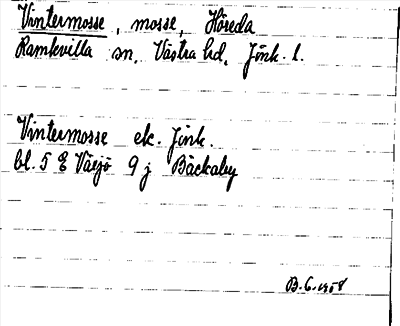 Vintermosse, mosse, Höreda
Ramkvilla sn, Västra hd, Jönk. l.
Vintermosse ek. Jönk.
bl. 5 E Växjö 9 j Bäckaby
B.G. 1958